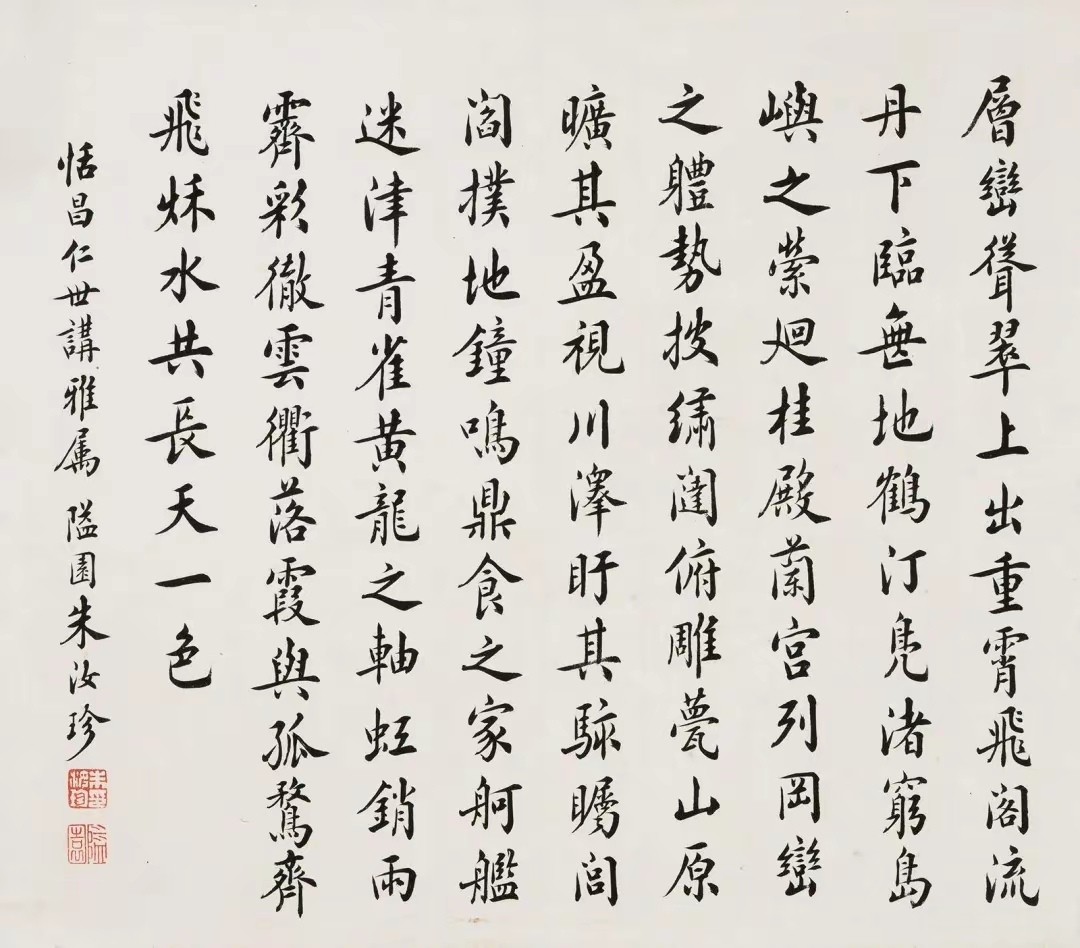 層巒聳翠上出重霄飛閣流
丹下臨無地鶴汀鳧渚窮島
嶼之縈廻桂殿蘭宮列岡巒
之體勢披繡闥俯雕甍山原
曠其盈視川澤盱其駭矚閭
閻撲地鐘鳴鼎食之家舸艦
迷津青雀黃龍之軸虹銷雨
霽彩徹雲衢落霞與孤鶩齊
飛秌水共長天一色
恬昌仁世講雅属 隘園朱汝珍